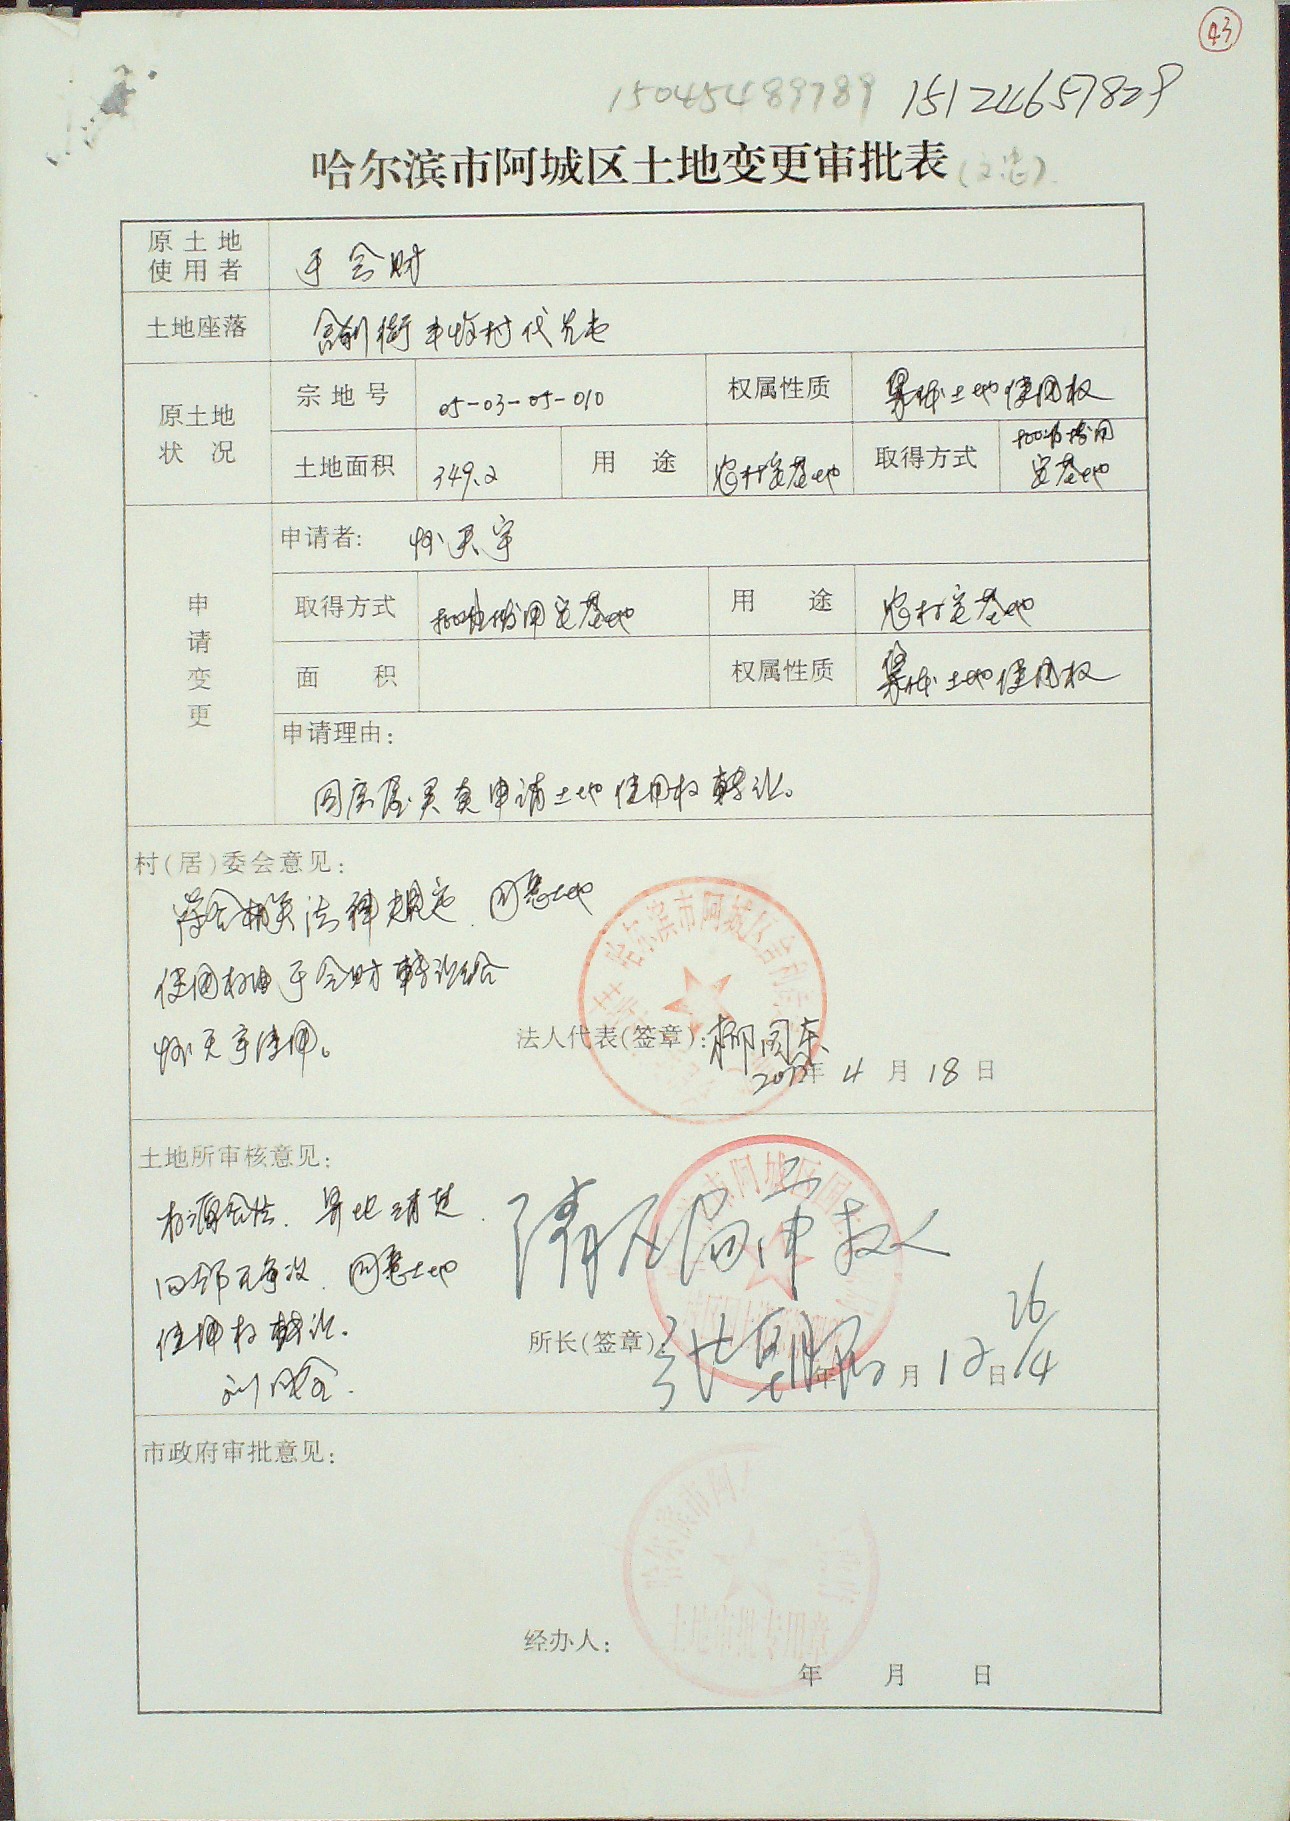 43
15045489789 15124657829
哈尔滨市阿城区土地变更审批表
原土地使用者 于会财
土地座落 舍利街
原土地状况 宗地号 05-03-05-010 权属性质 集体土地使用权
土地面积 349.2 用途 农村宅基地 取得方式 批准拨用宅基地
申请变更
申请者: 怀天宇
取得方式 批准拨用宅基地 用途 农村宅基地
面积 权属性质 集体土地使用权
申请理由:
因房屋买卖申请土地使用权转让。
村(居)委会意见:
符合相关法律规定、同意土地
使用权由于会财转让给
怀天宇使用。
法人代表(签章): 柳国东
年 4 月 18 日
土地所审核意见:
权源合法、界地清楚、
四邻无争议、同意土地
使用权转让.
请区局审批
所长(签章):
年 月 12 日 26/4
市政府审批意见:
哈尔滨市阿
土地审批专用章
经办人:
年 月 日